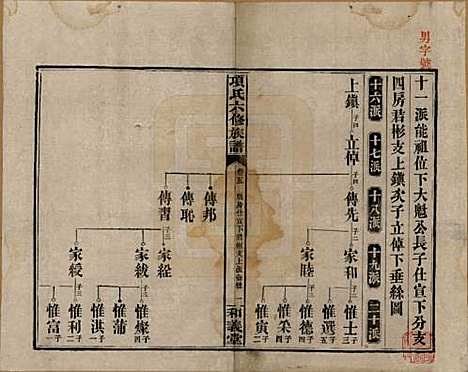 男字號
十一派能祖位下大魁公長子仕宣下分支
四房君彬支上鎮次子立倬下垂絲圖
十六派
十七派
十八派
十九派
二十派
上鎮 子四
立倬 子四
傳先 子二
傳邦
傳恥
傳書 子三
家和 子三
家睦 子三
家經
家紱 子三
家綬 子二
惟士 子三
惟選 子五
惟德 子三
惟采 子一
惟寅 子二
惟燦 子四
惟蒲
惟淇 子一
惟利 子二
惟富 子一
項氏六修族譜
卷五
和義堂